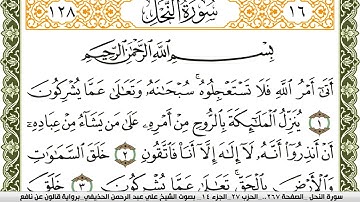 ١٦ سُورَةُ النَّحْلِ ١٢٨
بِسْمِ اللَّهِ الرَّحْمَٰنِ الرَّحِيمِ
أَتَىٰٓ أَمْرُ اللَّهِ فَلَا تَسْتَعْجِلُوهُۚ سُبْحَٰنَهُۥ وَتَعَٰلَىٰ عَمَّا يُشْرِكُونَ
١ يُنَزِّلُ الْمَلَٰٓئِكَةَ بِالرُّوحِ مِنْ أَمْرِهِۦ عَلَىٰ مَنْ يَشَآءُ مِنْ عِبَادِهِۦٓ
أَنْ أَنذِرُوٓا۟ أَنَّهُۥ لَآ إِلَٰهَ إِلَّآ أَنَا فَاتَّقُونِ ٢ خَلَقَ السَّمَٰوَٰتِ
وَالْأَرْضَ بِالْحَقِّۚ تَعَٰلَىٰ عَمَّا يُشْرِكُونَ ٣ خَلَقَ
سورة النحل . الصفحة ٢٦٧... الحزب ٢٧ الجزء ١٤ .. بصوت الشيخ علي عبد الرحمن الحذيفي . برواية قالون عن نافع